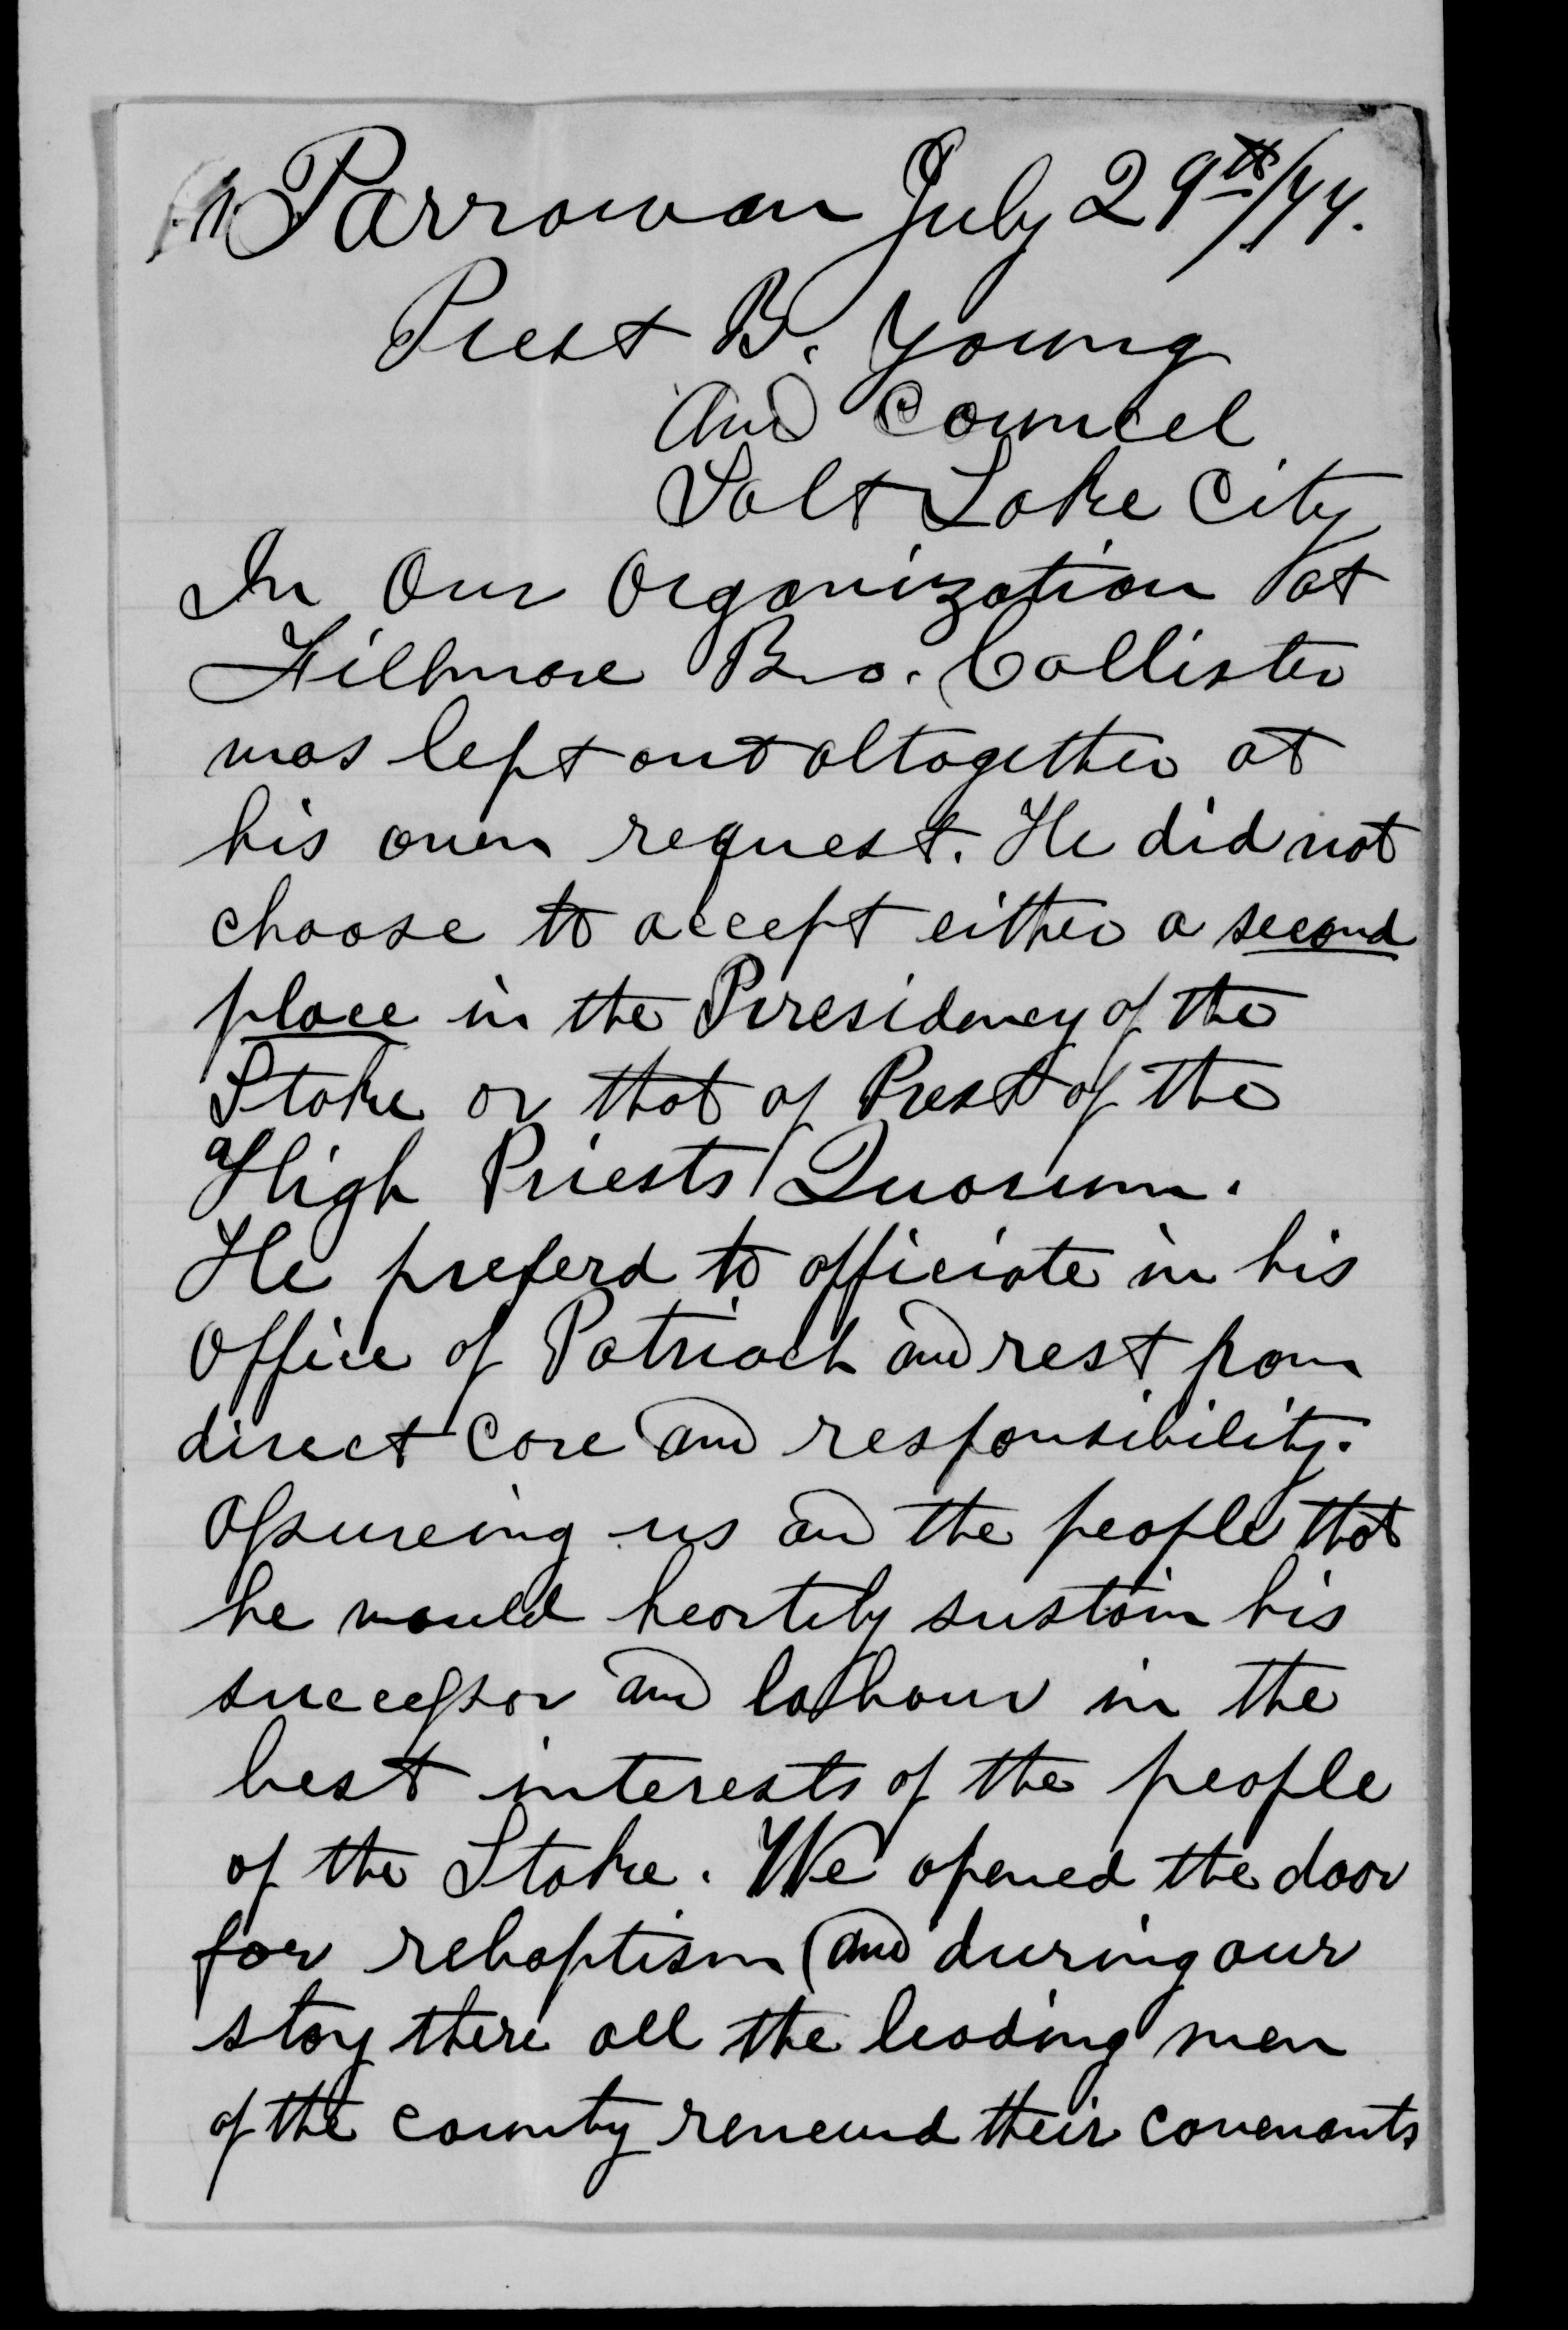 Parrowan July 29th/77.
Prest B. Young
and Councel
Salt Lake City
In Our Organization at
Fillmore Bro. Callister
was left out altogether at
his own request. He did not
choose to accept either a second
place in the Presidency of the
Stake or that of Prest of the
High Priests Quorum.
He preferd to officiate in his
Office of Patriach and rest from
direct Care and responsibility.
Assureing us an the people that
he would heartily sustain his
successor and labour in the
best interests of the people
of the Stake. We opened the door
for rebaptism and during our
stay there all the leading men
of the county renewd their covenants